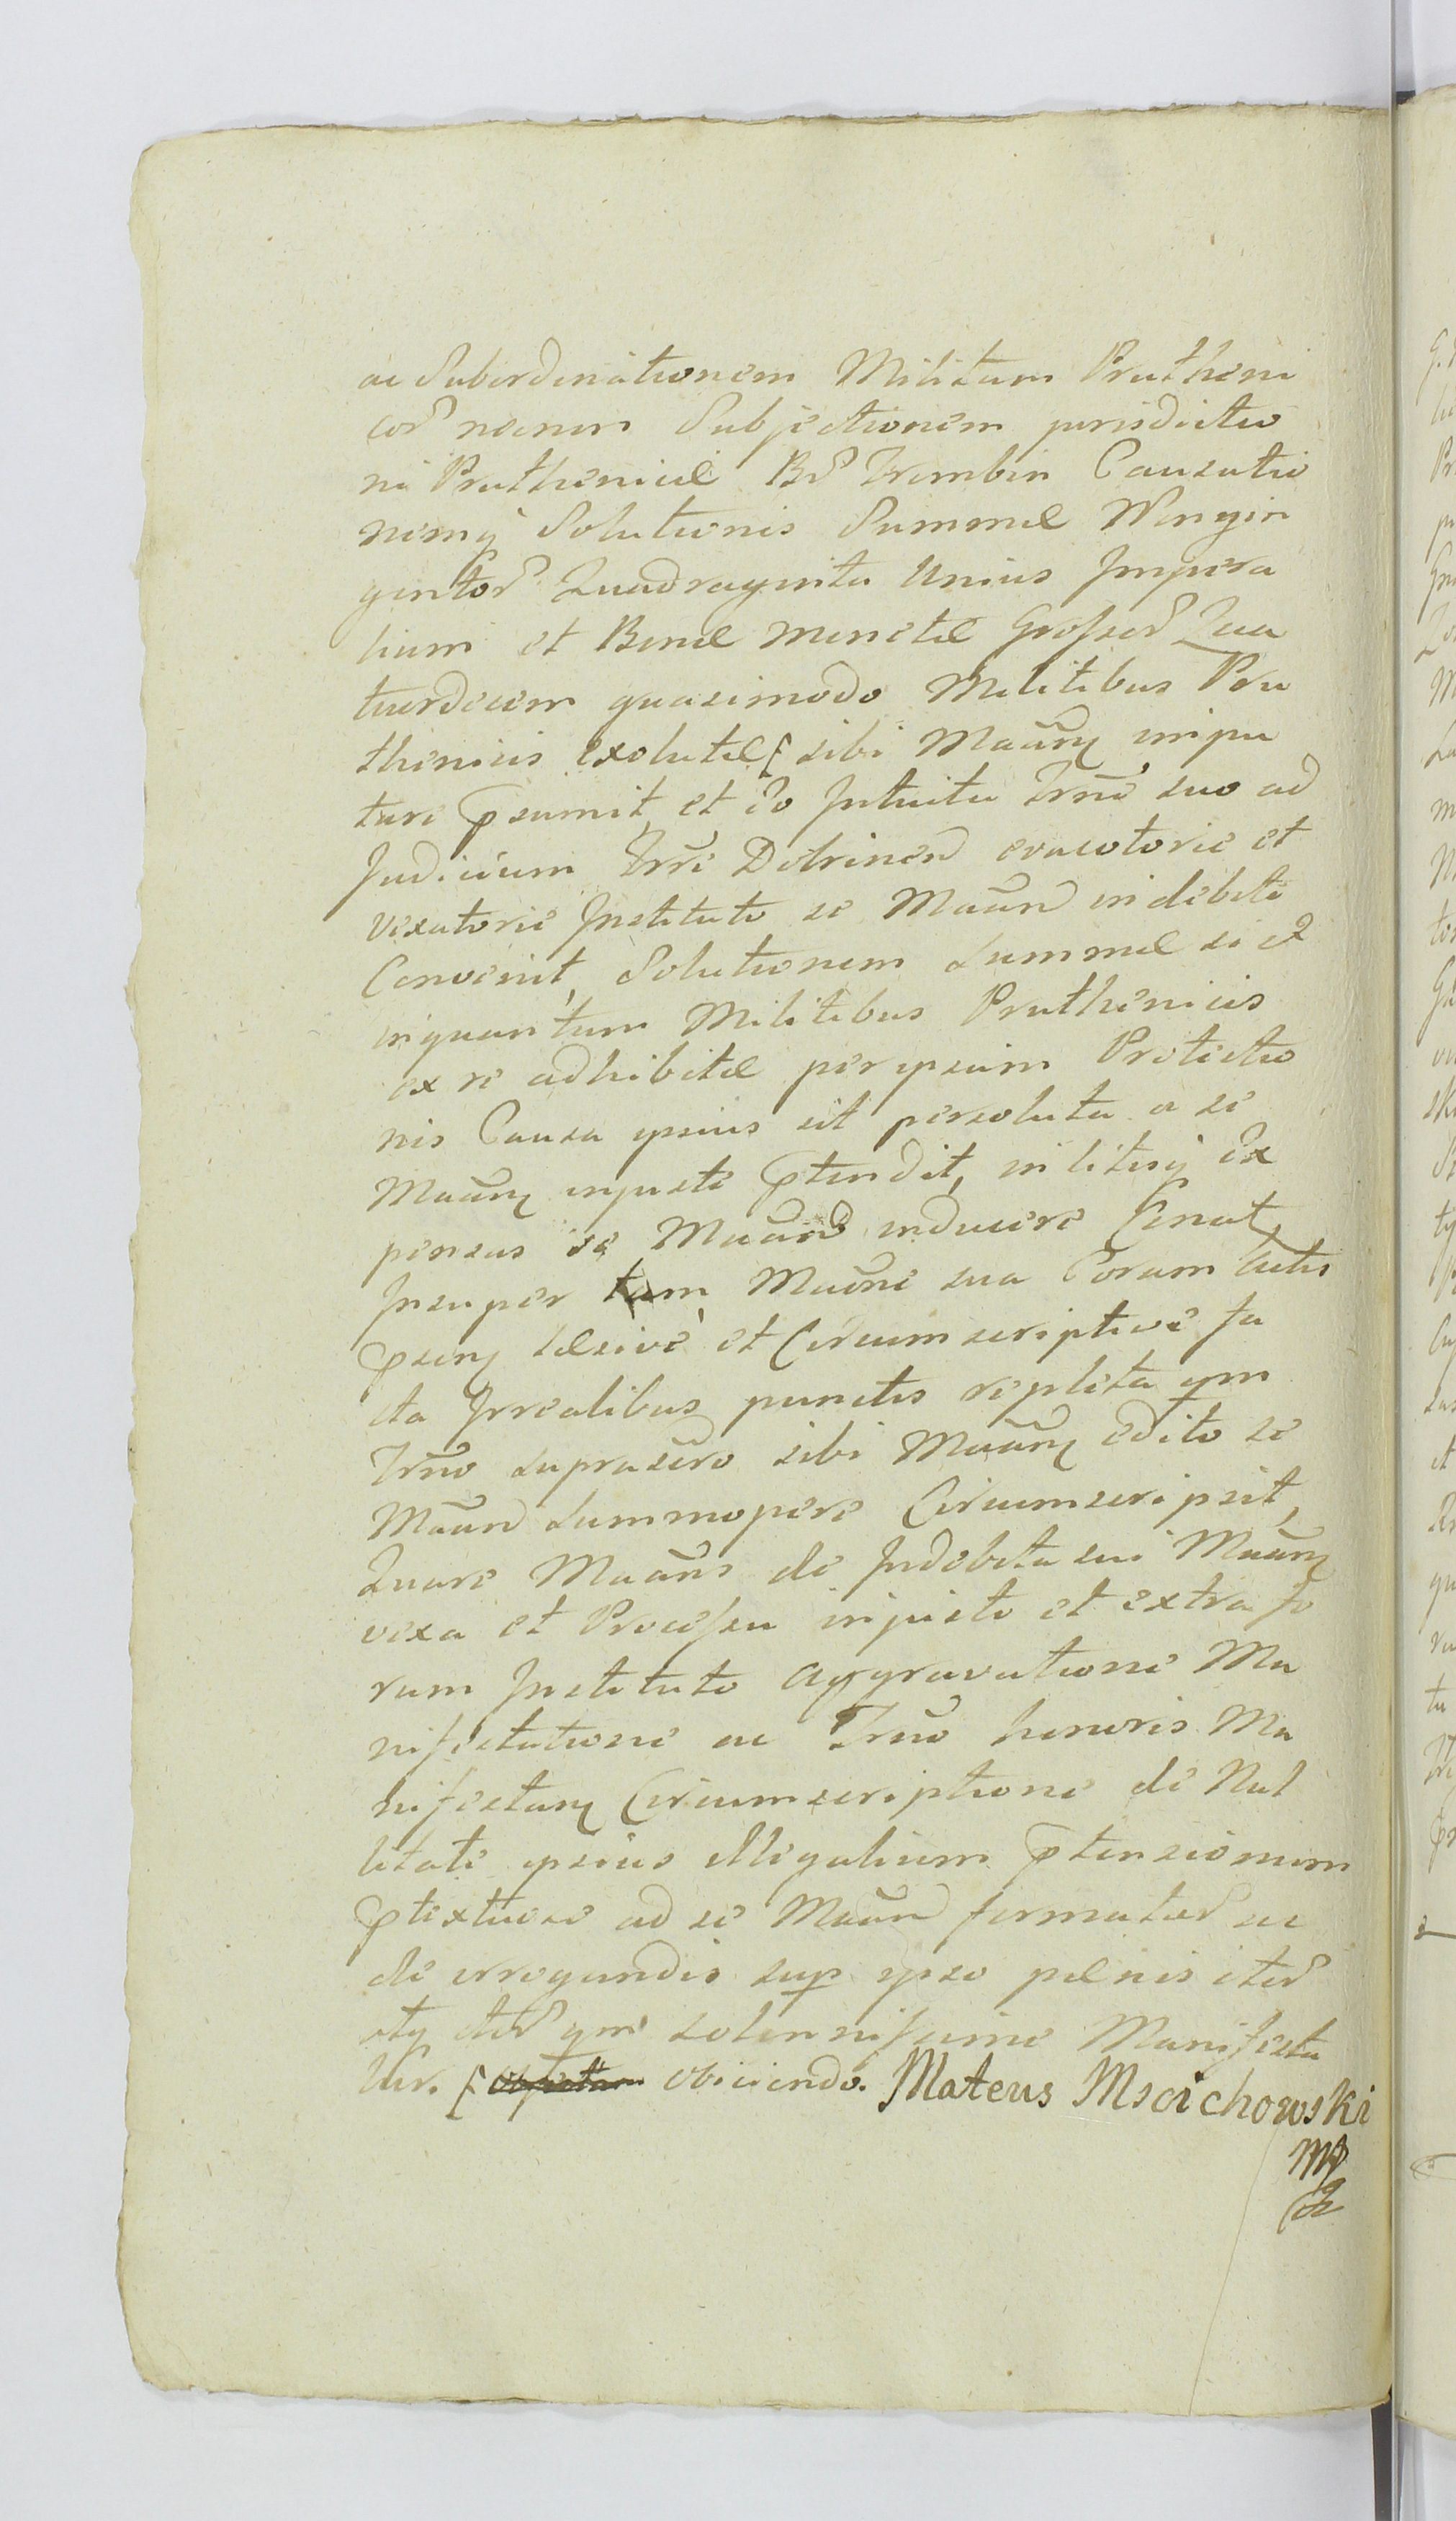 ac Subordinationem Militum Prutheni
cor̃ necnon Subjectionem jurisdictio
ni Pruthenicæ Bẽ Trembin Causatio
nemq̨ Solutionis Summæ Nongin
gentor̃ Quadraginta Unius Impera
lium et Bonæ monetæ Grosser̃ Qua
tuordecim quasimodo Militibus Pru
thenicis exolutæ [ sibi Maãnȝ impu
tare p̃sumit, et eo Intuitu Trm̃e suo ad
Judicium Trr̃e Dobrinen̄ evacotorie et
vexatorie Instituto se Maãn̄ indebite
Convenit, Solutionem Summæ si et
inquantum Militibus Pruthenicis
ex re adhibitæ per ipsum Protectio
nis Causa ipsius sit persoluta a se
Maãnȝ injuste p̃tendit, in litisq̨ Ex
pensas se Maãn̄ inducere Conat,
Insuper tam Maõne sua Coram Actis
p̃senȝ læsivè et Circumscriptive fa
cta Irrealibus punctis repleta qm
Trm̃o suprascr̃o sibi Maãnȝ edito se
Maãn̄ summopere Circumscripsit,
Quare Maãns de Indebita sui Maãnȝ
vexa et Processu injusto et extra fo
rum Instituto Aggravatione Ma
nifestatione ac Trm̃o honoris Ma
nifestanȝ Circumscriptione de Nul
litate ipsius illegalium p̃tensionum
p̃textuose ad se Maãn̄ formatar̃ ac
de irrogandis sup ipso pænis iter̃
atq̨ iter̃ qm̃ solennissime Manifesta
tur. [ obiiciendo. Mateus Mscichowski
mp